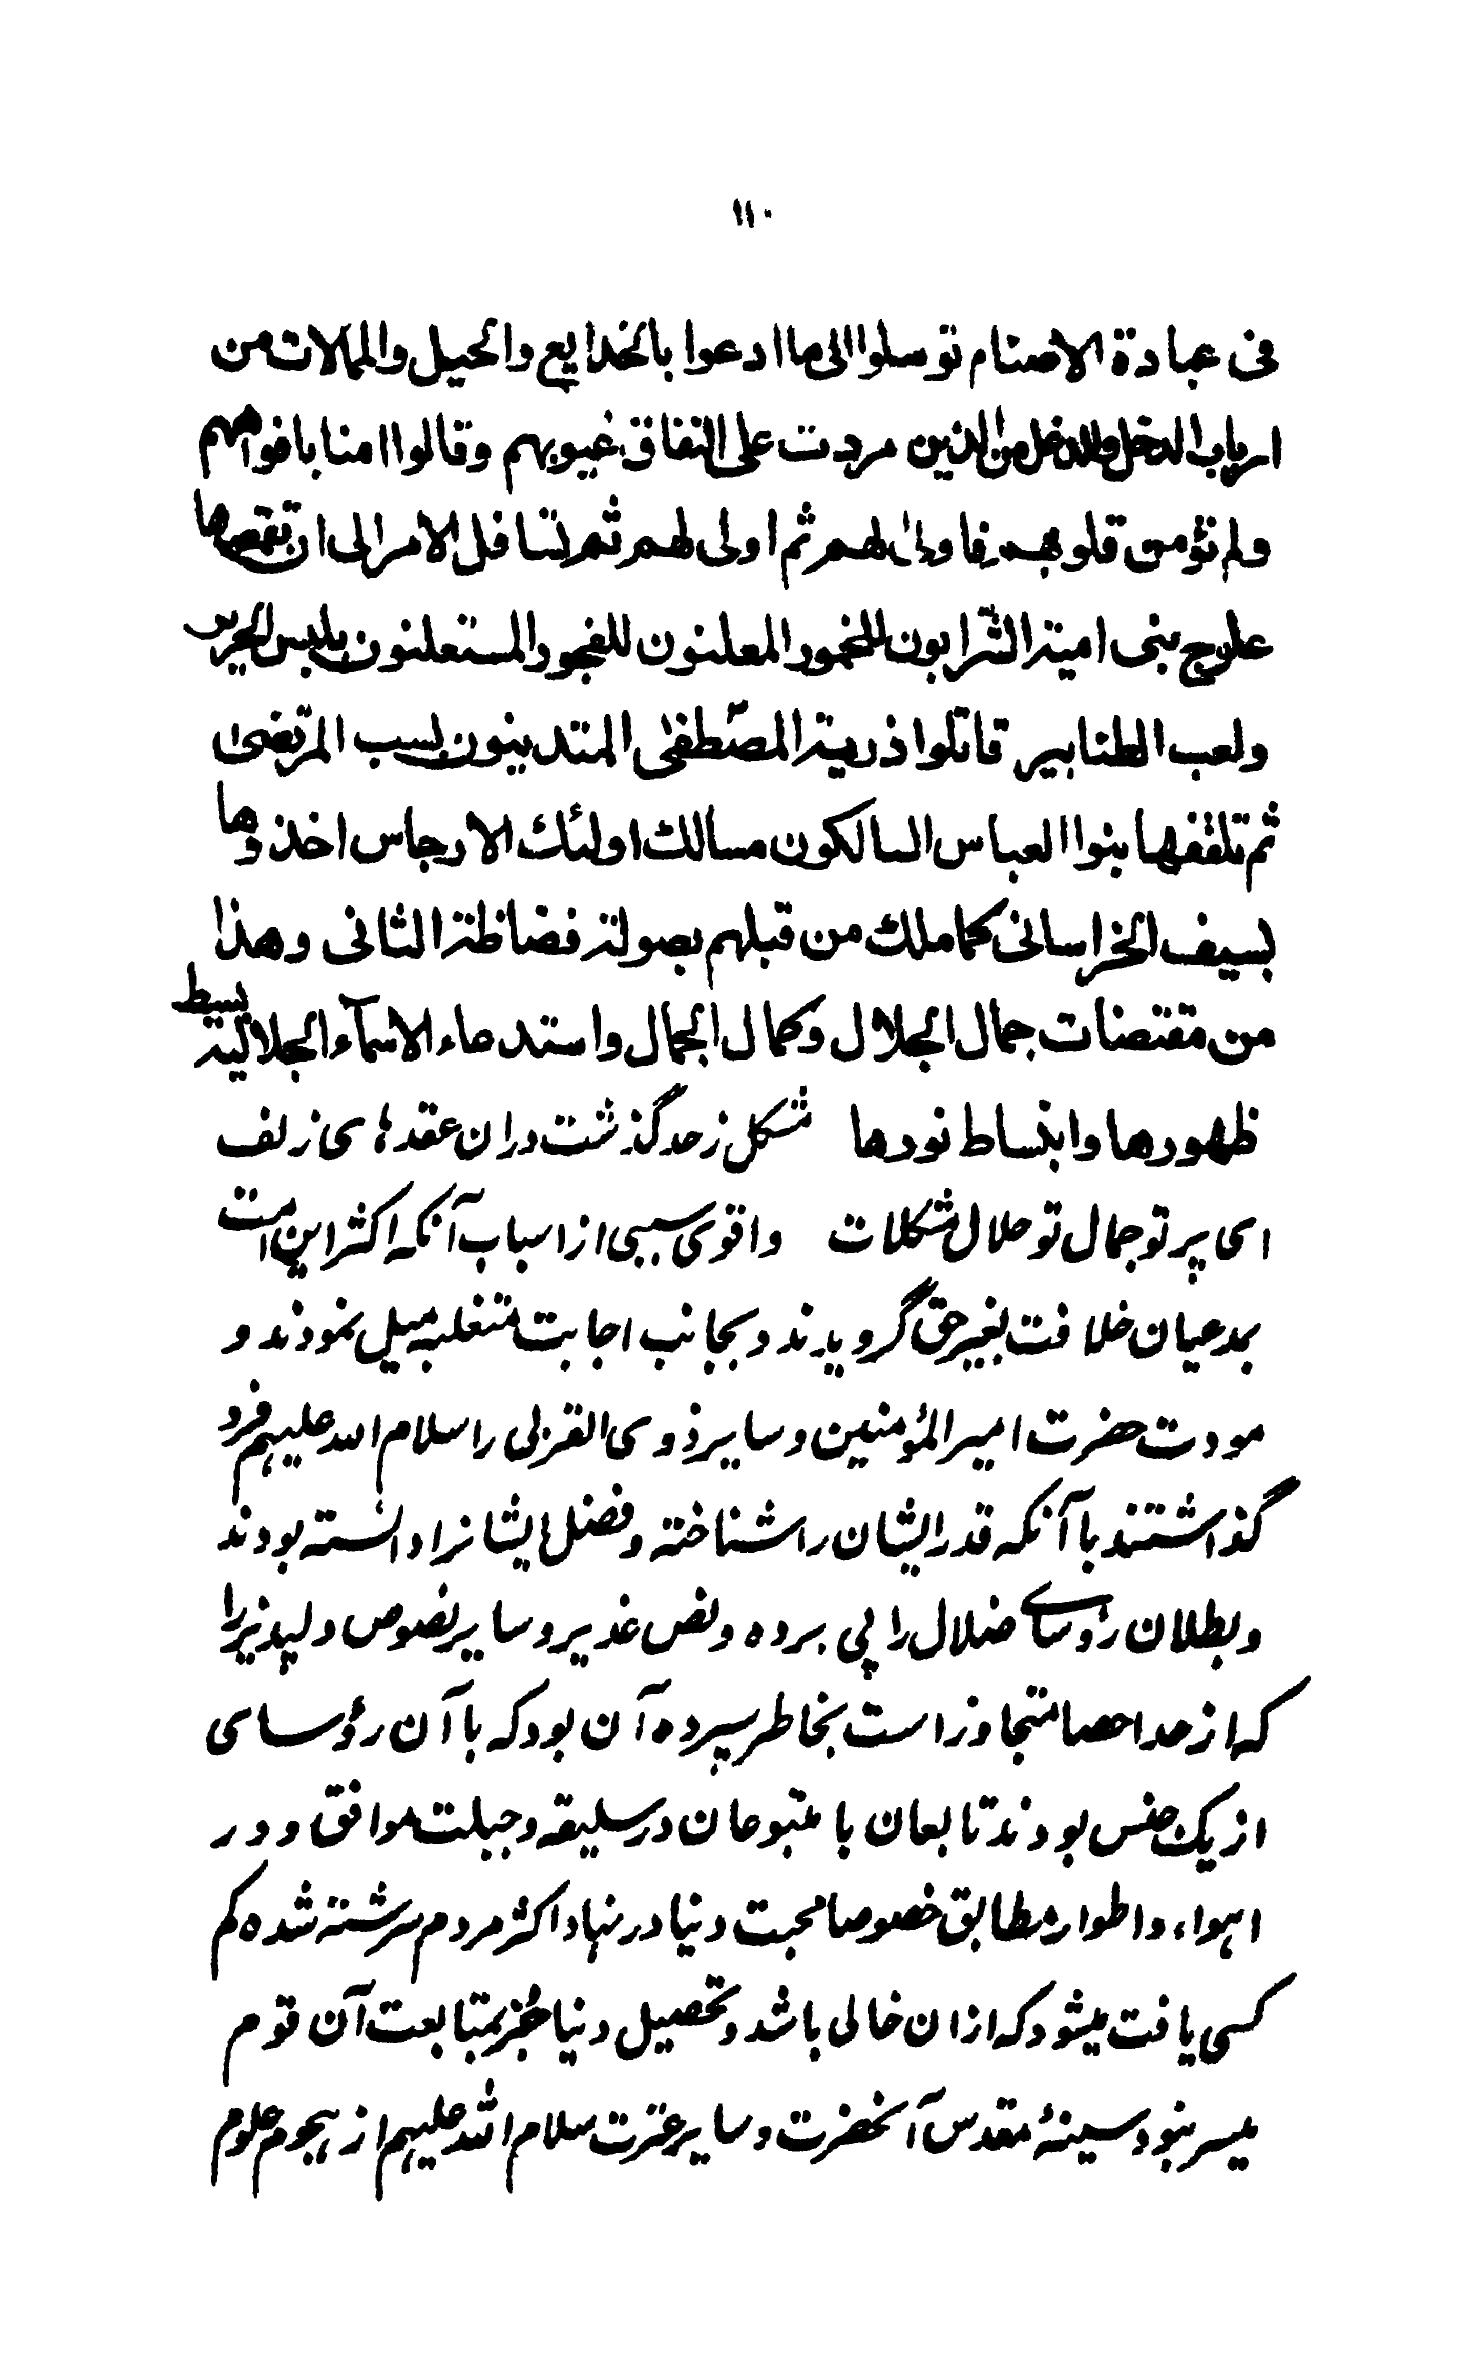 ١١٠
فى عبادة الاصنام توسلوا الى ما ادعوا بالخدايع والحيل والممالات من
ارباب الدخل والدغل من الذين مردت على النفاق غيوبهم وقالوا امنا بافواههم
ولم تؤمن قلوبهم فاولى لهم ثم اولى لهم ثم تسافل الامر الى ان تقمصها
علوج بنى امية الشرابون للخمور المعلنون للفجور المستعلنون بلبس الحرير
ولعب الطنابير قاتلوا ذرية المصطفى المتدينون بسب المرتضى
ثم تلقفها بنوا العباس السالكون مسالك اولئك الارجاس اخذوها
بسيف الخراسانى كما ملك من قبلهم بصولة فضاظة الثانى وهذا
من مقتضات جمال الجلال وكمال الجمال واستدعاء الاسمآء الجلالية بسيط
ظهورها وانبساط نورها شكل ز حد گذشت دران عقدهاى زلف
اى پرتو جمال تو حلال مشكلات واقوى سببى از اسباب آنكه اكثر اين امت
بمدعيان خلافت بغير حق گرويدند وبجانب اجابت متغلبه ميل نمودند و
مودت حضرت امير المؤمنين وساير ذوى القربى را سلام الله عليهم فرو
گذاشتند با آنكه قدر ايشان را شناخته وفضل ايشانرا دانسته بودند
وبطلان رؤساى ضلال را پى برده ونص غدير وساير نصوص دلپذير را
كه از حد احصا متجاوز است بخاطر سپرده آن بود كه با آن رؤساى
از يك جنس بودند تابعان با متبوعان در سليقه وجبلت موافق ودر
اهواء واطوار مطابق خصوصا محبت دنيا در نهاد اكثر مردم سرشته شده كم
كسى يافت ميشود كه ازان خالى باشد وتحصيل دنيا جز بمتابعت آن قوم
ميسر نبود وسينهٔ مقدس آنحضرت وساير عترت سلام الله عليهم از هجوم علوم